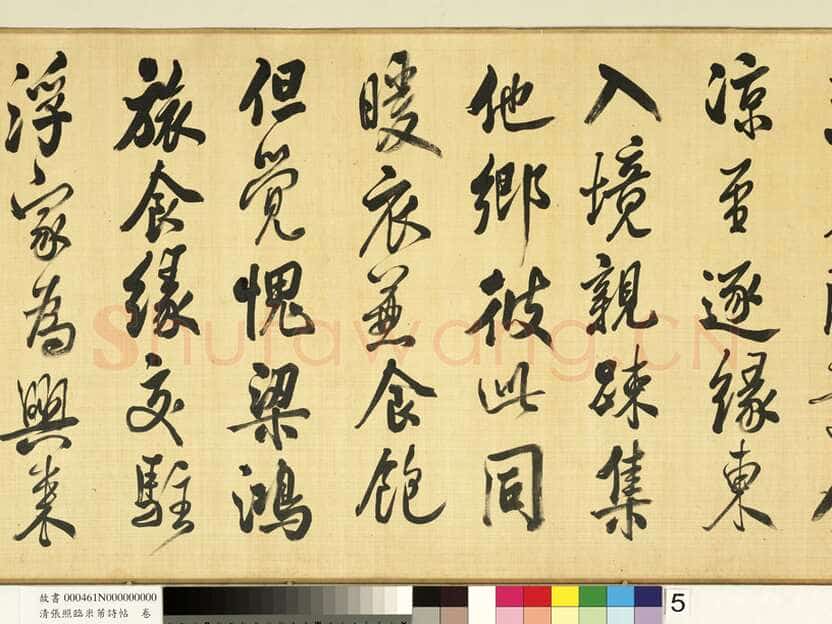 涼至逐緣東
入境親踈集
他鄉彼此同
暖衣兼食飽
但覺愧梁鴻
旅食緣交駐
浮家為興来
Shufawang.CN
故書 000461N000000000
清張照臨米芾詩帖 卷
5